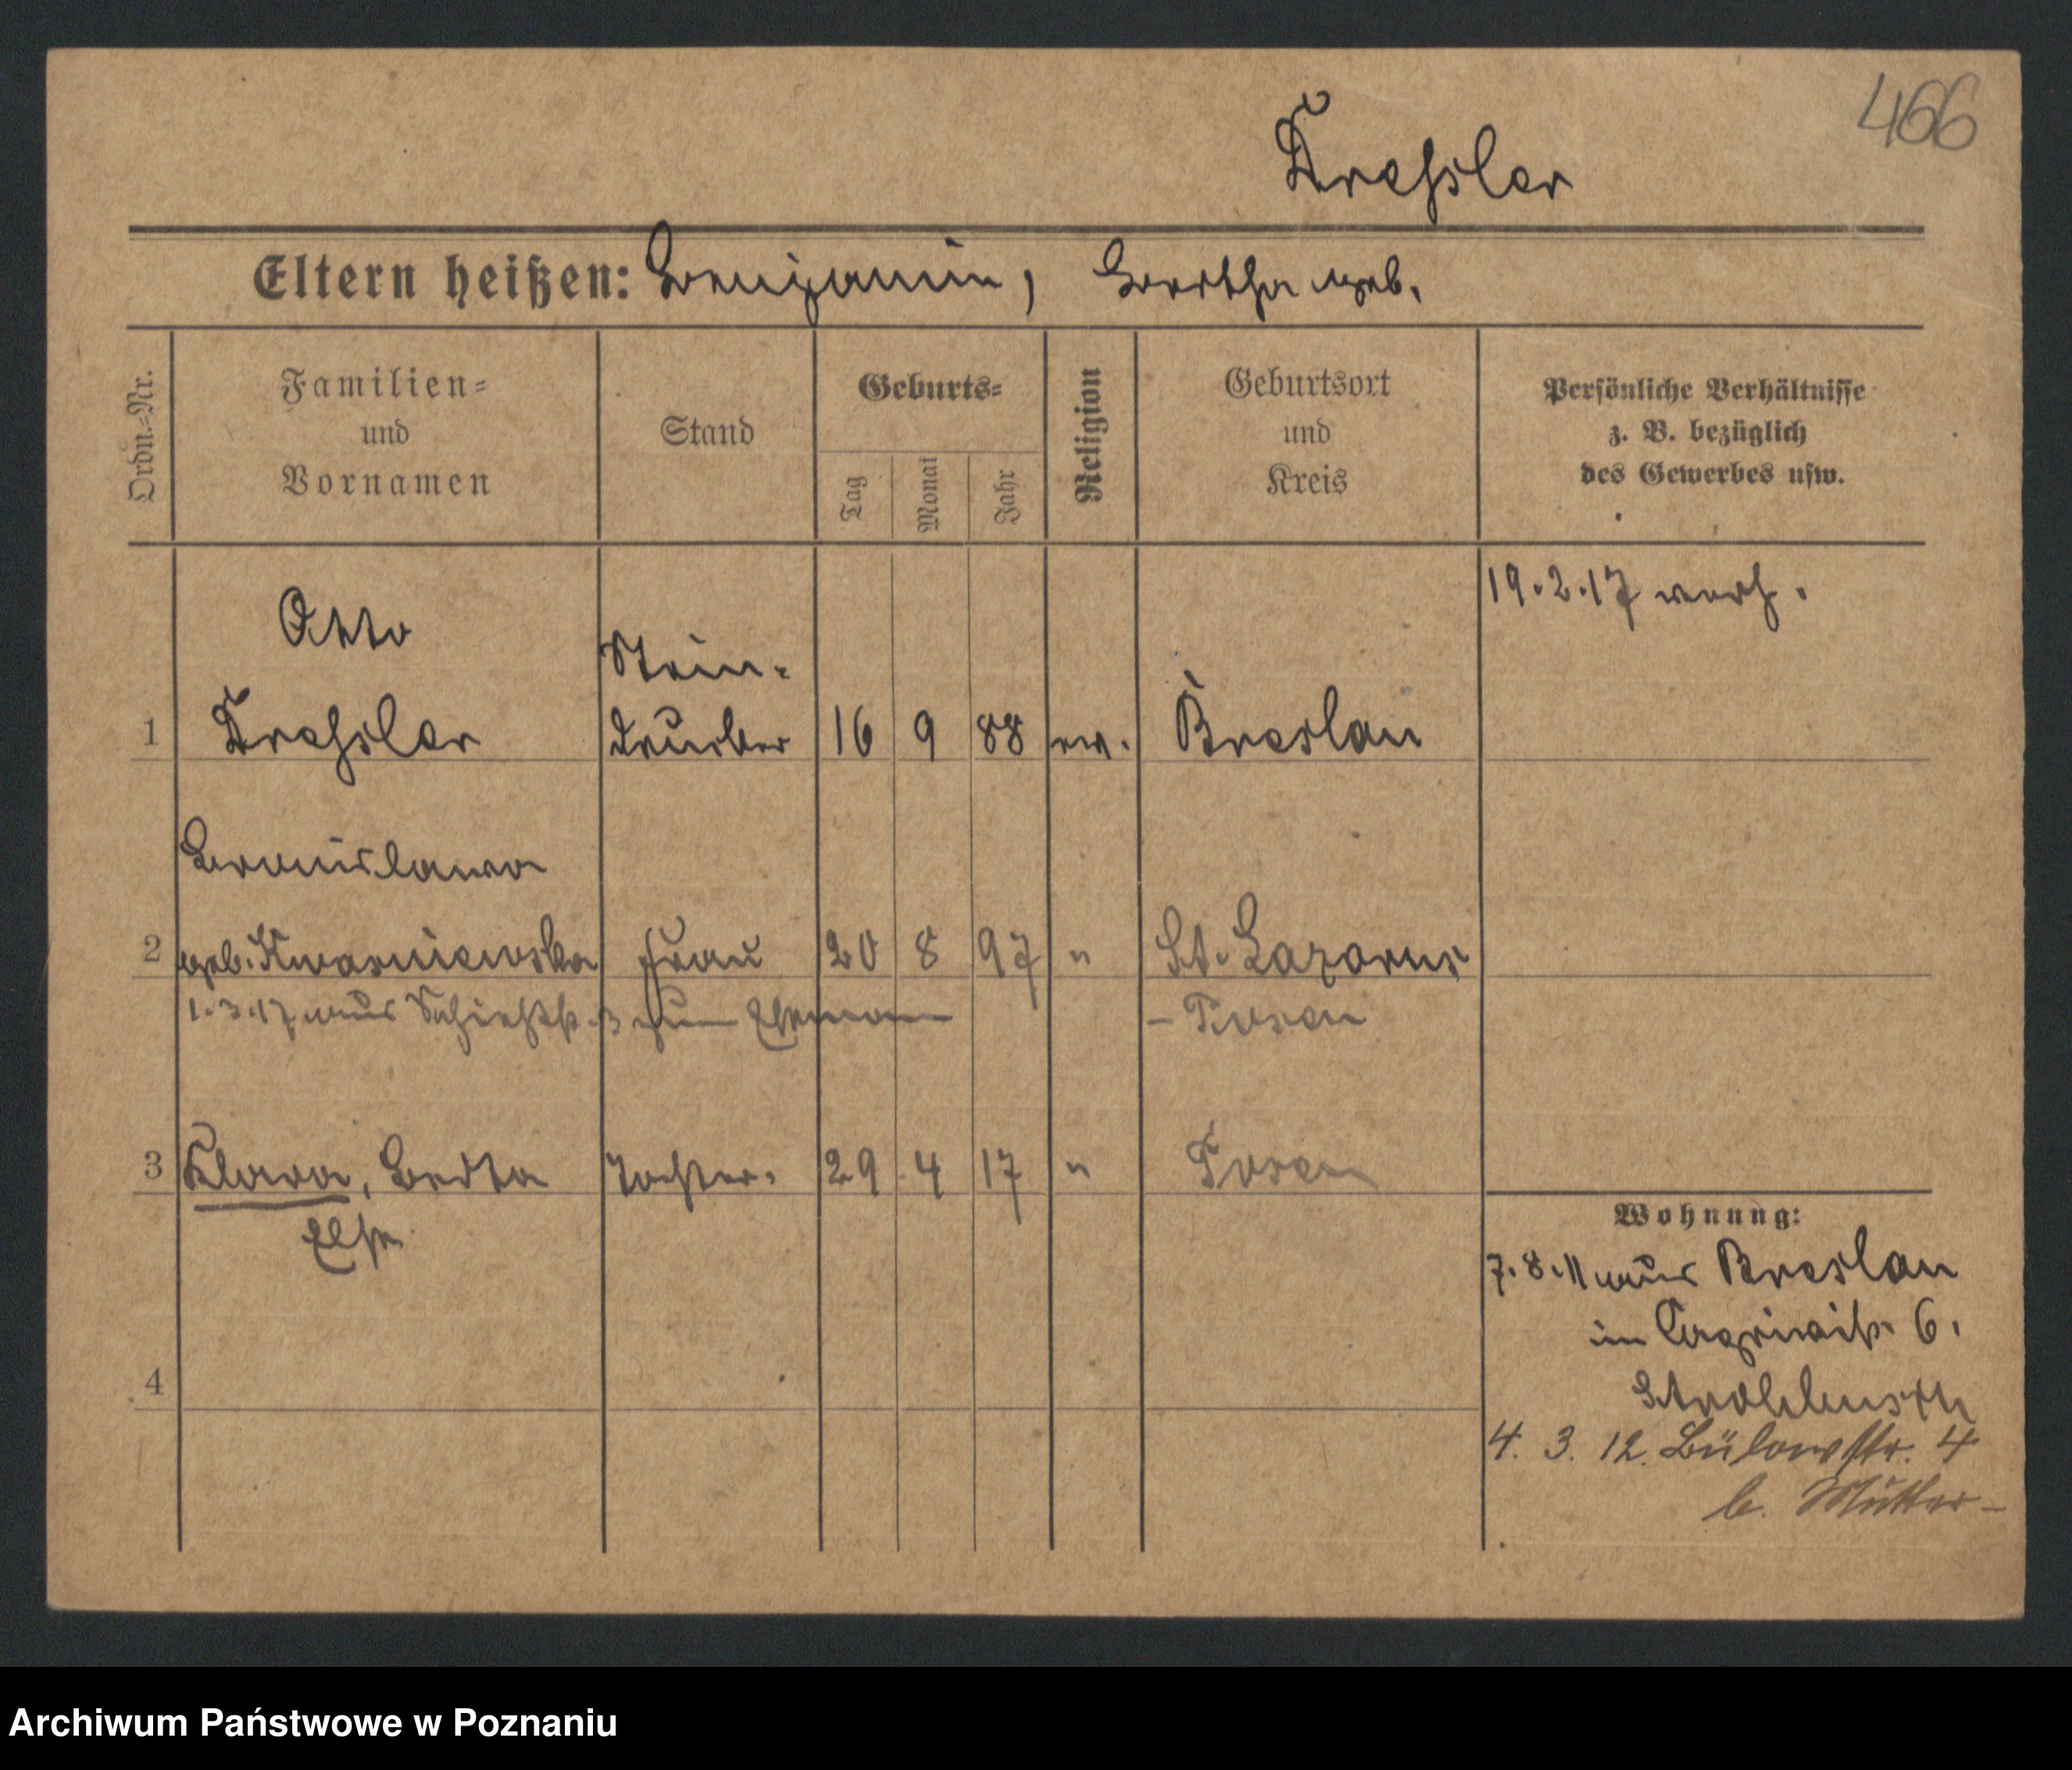 466
Dressler
Eltern heißen: Benjamin, Bertha geb.
Ordn.=Nr.
Familien=
und
Vornamen
Stand
Geburts=
Tag
Monat
Jahr
Religion
Geburtsort
und
Kreis
Persönliche Verhältnisse
z. B. bezüglich
des Gewerbes usw.
19.2.17 verh.
Otto Stein-
1 Dressler drucker 16 9 88 ev. Breslau
Bronislawa
2 geb. Kwasniewska Frau 20 8 97 " St. Lazarus
1.3.17 aus Schießstr. 3 zum Ehemann - Posen
3 Klara, Berta Tochter. 29 4 17 " Posen
Else
Wohnung:
7.8.11 aus Breslau
in 6.
4
4. 3. 12. Bülowstr. 4
b. Mutter -
Archiwum Państwowe w Poznaniu